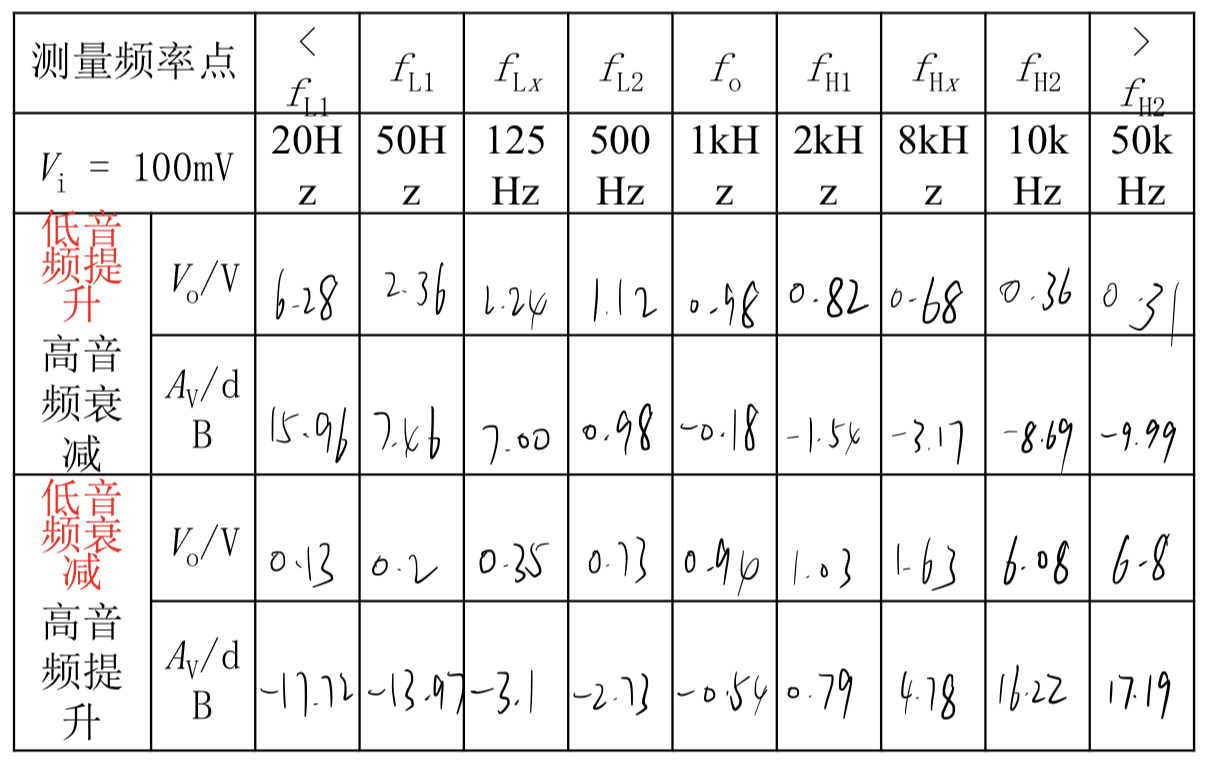 测量频率点 < fL1 fL1 fLx fL2 fo fH1 fHx fH2 > fH2
Vi = 100mV 20Hz 50Hz 125Hz 500Hz 1kHz 2kHz 8kHz 10kHz 50kHz
低音频提升
高音频衰减
Vo/V 6.28 2.36 2.24 1.12 0.98 0.82 0.68 0.36 0.31
AV/dB 15.96 7.46 7.00 0.98 -0.18 -1.54 -3.17 -8.69 -9.99
低音频衰减
高音频提升
Vo/V 0.13 0.2 0.35 0.73 0.94 1.03 1.63 6.08 6.8
AV/dB -17.72 -13.97 -3.1 -2.73 -0.54 0.79 4.78 16.22 17.19